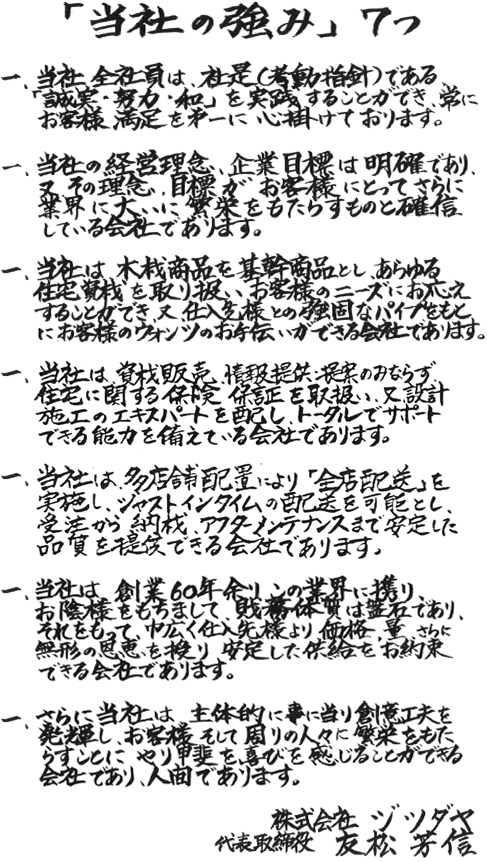 「当社の強み」7つ
一、当社、全社員は、社是(考動指針)である
「誠実・努力・和」を実践することができ、常に
お客様満足を第一に心掛けております。
一、当社の経営理念、企業目標は明確であり、
又、その理念、目標がお客様にとってさらに
業界に大いに繁栄をもたらすものと確信
している会社であります。
一、当社は、木材商品を基幹商品とし、あらゆる
住宅資材を取り扱い、お客様のニーズにお応え
することができ、又、仕入先様との強固なパイプをもと
にお客様のウォンツのお手伝いができる会社であります。
一、当社は、資材販売、情報提供・提案のみならず
住宅に関する保険、保証を取扱い、又、設計
施工のエキスパートを配し、トータルでサポート
できる能力を備えている会社であります。
一、当社は、多店舗配置により「全店配送」を
実施し、ジャストインタイムの配送を可能とし、
受注から納材、アフターメンテナンスまで安定した
品質を提供できる会社であります。
一、当社は、創業60年余りこの業界に携り、
お陰様をもちまして、財務体質は盤石であり、
それをもって、中広く仕入先様より価格、量、さらに
無形の恩恵を授り、安定した供給をお約束
できる会社であります。
一、さらに当社は、主体的に事に当り創意工夫を
発輝し、お客様そして周りの人々に繁栄をもた
らすことに、やり甲斐を、喜びを感じることができる
会社であり、人間であります。
株式会社 ジツダヤ
代表取締役 友松 芳信